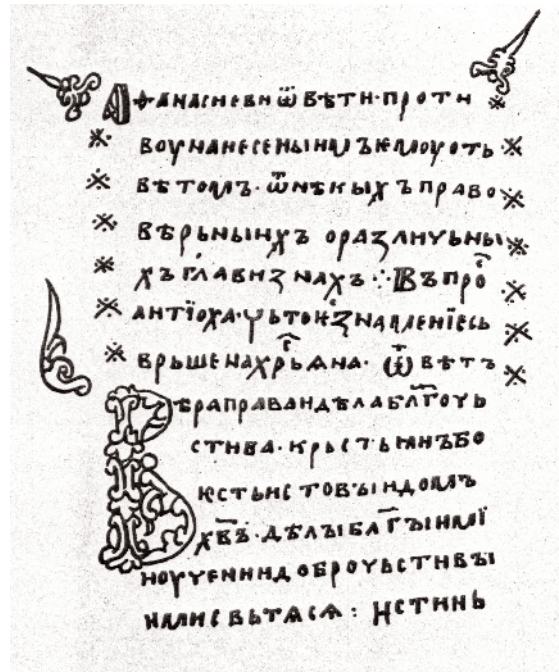 Аѳанасиеви ѿвѣти · проти
воу нанесенꙑимъ ѥмоу отъ
вѣтомъ · ѿ нѣкꙑхъ право
вѣрьнꙑихъ о различьнꙑ
хъ главизнахъ ⁘ Въпроⷭ
антїоха · чьто ѥⷭ знамениѥ съ
врьшена хрⷭьꙗна · ѿвѣтъ
Вѣра праваꙗ и дѣла блг҃очь
стива · крьстьꙗнъ бо
ѥсть истовꙑи домъ
хв҃ъ · дѣлꙑ благꙑими ї
ноучении доброчьстивꙑ
ими съвьтаѩсѧ : Истинь